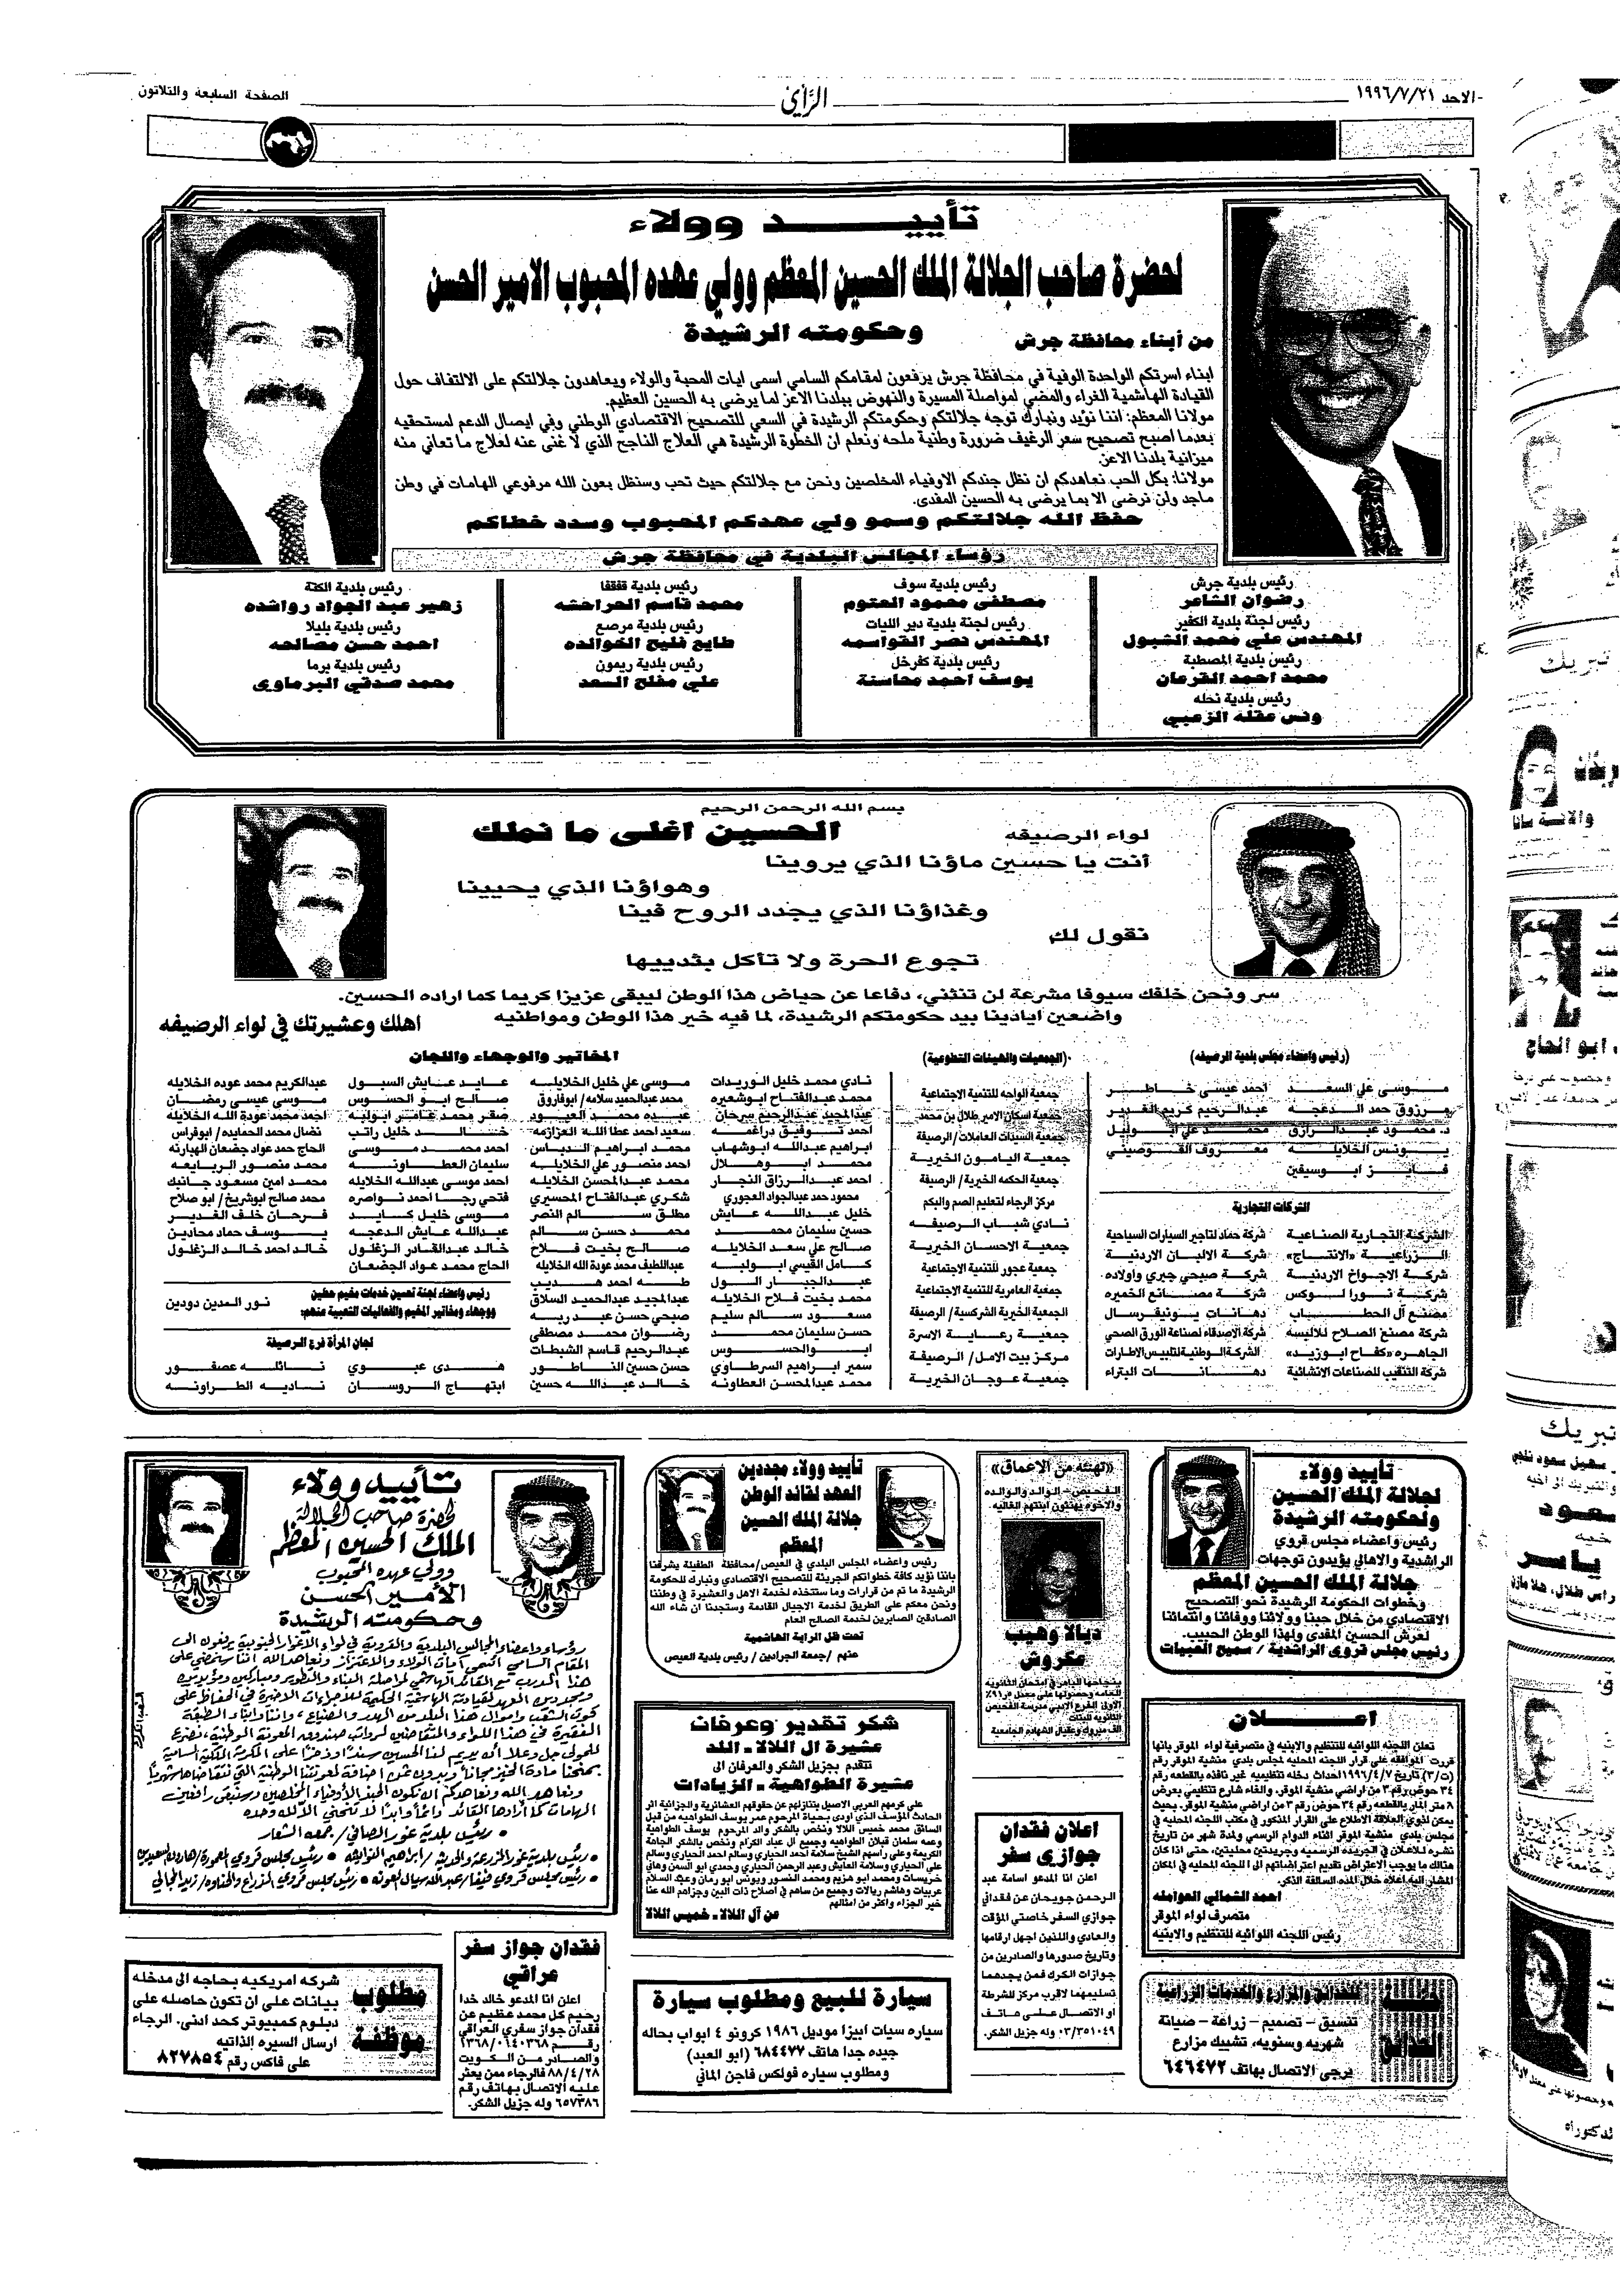 الاحد ١٩٩٦/٧/٢١
الرأي
الصفحة السابعة والثلاثون
تأييد وولاء
لحضرة صاحب الجلالة الملك الحسين المعظم وولي عهده المحبوب الامير الحسن
وحكومته الرشيدة
من أبناء محافظة جرش
ابناء اسرتكم الواحدة الوفية في محافظة جرش يرفعون لمقامكم السامي اسمى ايات المحبة والولاء ويعاهدون جلالتكم على الالتفاف حول
القيادة الهاشمية الغراء والمضي لمواصلة المسيرة والنهوض ببلدنا الاعز لما يرضى به الحسين العظيم.
مولانا المعظم: اننا نؤيد ونبارك توجه جلالتكم وحكومتكم الرشيدة في السعي للتصحيح الاقتصادي الوطني وفي ايصال الدعم لمستحقيه
بعدما اصبح تصحيح سعر الرغيف ضرورة وطنية ملحه ونعلم ان الخطوة الرشيدة هي العلاج الناجح الذي لا غنى عنه لعلاج ما تعاني منه
ميزانية بلدنا الاعز.
مولانا: بكل الحب نعاهدكم ان نظل جندكم الاوفياء المخلصين ونحن مع جلالتكم حيث تحب وسنظل بعون الله مرفوعي الهامات في وطن
ماجد ولن نرضى الا بما يرضى به الحسين المفدى.
حفظ الله جلالتكم وسمو ولي عهدكم المحبوب وسدد خطاكم
رؤساء المجالس البلدية في محافظة جرش
رئيس بلدية جرش
رضوان الشاعر
رئيس لجنة بلدية الكفير
المهندس علي محمد الشبول
رئيس بلدية المصطبة
محمد احمد القرعان
رئيس بلدية نحله
ونس عقله الزعبي
رئيس بلدية سوف
مصطفى محمود العتوم
رئيس لجنة بلدية دير الليات
المهندس نصر القواسمه
رئيس بلدية كفرخل
يوسف احمد محاسنة
رئيس بلدية قفقفا
محمد قاسم الحراحشه
رئيس بلدية مرصع
طايع فليح الخوالده
رئيس بلدية ريمون
علي مفلح السعد
رئيس بلدية الكتة
زهير عبد الجواد رواشده
رئيس بلدية بليلا
احمد حسن مصالحه
رئيس بلدية برما
محمد صدقي البرماوي
بسم الله الرحمن الرحيم
الحسين اغلى ما نملك
لواء الرصيفه
أنت يا حسين ماؤنا الذي يروينا
وهواؤنا الذي يحيينا
وغذاؤنا الذي يجدد الروح فينا
نقول لك
تجوع الحرة ولا تأكل بثدييها
سر ونحن خلفك سيوفا مشرعة لن تنثني، دفاعا عن حياض هذا الوطن ليبقى عزيزا كريما كما اراده الحسين.
واضعين ايادينا بيد حكومتكم الرشيدة، لما فيه خير هذا الوطن ومواطنيه
اهلك وعشيرتك في لواء الرصيفه
(رئيس واعضاء مجلس بلدية الرصيفه)
موسى علي السعد
احمد عيسى خاطر
مرزوق حمد الدعجه
عبدالرحيم كريم الغدير
د. محمود عبدالرازق
محمد علي ابونيل
يونس الخلايله
معروف القوصيني
فايز ابوسيفين
الشركات التجارية
الشركة التجارية الصناعية
شركة حماد لتاجير السيارات السياحية
الزراعية «الانتاج»
شركة الالبان الاردنية
شركة الاجواخ الاردنية
شركة صبحي جبري واولاده
شركة نورا لوكس
شركة مصانع الخميره
مصنع آل الحطاب
دهانات يونيفرسال
شركة مصنع الصلاح للالبسه
شركة الاصدقاء لصناعة الورق الصحي
الجاهره «كفاح ابوزيد»
الشركة الوطنية لتلبيس الاطارات
شركة التنقيب للصناعات الانشائية
دهانات البتراء
(الجمعيات والهيئات التطوعية)
جمعية الواحه للتنمية الاجتماعية
جمعية اسكان الامير طلال بن محمد
جمعية السيدات العاملات/ الرصيفة
جمعية اليامون الخيرية
جمعية الحكمه الخيرية/ الرصيفة
مركز الرجاء لتعليم الصم والبكم
نادي شباب الرصيفه
جمعية الاحسان الخيرية
جمعية عجور للتنمية الاجتماعية
جمعية العامرية للتنمية الاجتماعية
الجمعية الخيرية الشركسية/ الرصيفة
جمعية رعاية الاسرة
مركز بيت الامل/ الرصيفة
جمعية عوجان الخيرية
المخاتير والوجهاء واللجان
نادي محمد خليل الوريدات
محمد عبدالفتاح ابوشعيره
عبدالمجيد عبدالرحيم سرحان
احمد توفيق دراغمه
ابراهيم عبدالله ابوشهاب
محمد ابوهلال
احمد عبدالرزاق النجار
محمود حمد عبدالجواد العجوري
خليل عبدالله عايش
حسين سليمان محمد
صالح علي سعد الخلايله
كامل القيسي ابولبه
عبدالجبار السول
محمد بخيت فلاح الخلايله
مسعود سالم سليم
حسن سليمان محمد
ابوالحسوس
سمير ابراهيم السرطاوي
محمد عبدالمحسن العطاونه
موسى علي خليل الخلايله
محمد عبدالحميد سلامه/ ابوفاروق
عبده محمد العبود
سعيد احمد عطا الله العزازمه
محمد ابراهيم الدباس
احمد منصور علي الخلايله
محمد عبدالمحسن الخلايله
شكري عبدالفتاح المحسيري
مطلق سالم النصر
محمد حسن سالم
صالح بخيت فلاح
عبداللطيف محمد عودة الله الخلايله
طه احمد هديب
عبدالمجيد عبدالحميد السلاق
صبحي حسن عبدربه
رضوان محمد مصطفى
عبدالرحيم قاسم الشبطات
حسن حسين الناطور
خالد عبدالله حسين
عايد عايش السبول
صالح ابو الحسوس
صقر محمد عامر ابولبه
خالد خليل راتب
احمد محمد موسى
سليمان العطاونه
احمد موسى عبدالله الخلايله
فتحي رجا احمد نواصره
موسى خليل كايد
عبدالله عايش الدعجه
خالد عبدالقادر الزغلول
الحاج محمد عواد الجضعان
عبدالكريم محمد عوده الخلايله
موسى عيسى رمضان
احمد محمد عودة الله الخلايله
نضال محمد الحمايده/ ابوفراس
الحاج حمد عواد جضعان الهبارنه
محمد منصور الربايعه
محمد امين مسعود جانبك
محمد صالح ابوشريخ/ ابو صلاح
فرحان خلف الغدير
يوسف حماد محادين
خالد احمد خالد الزغلول
رئيس واعضاء لجنة تحسين خدمات مخيم حطين
ووجهاء ومخاتير المخيم والفعاليات الشعبية منهم:
نور الدين دودين
لجان المرأة فرع الرصيفة
هدى عبوي
نائله عصفور
ابتهاج الروسان
ناديه الطراونه
تأييد وولاء
لجلالة الملك الحسين
ولحكومته الرشيدة
رئيس واعضاء مجلس قروي
الراشدية والاهالي يؤيدون توجهات
جلالة الملك الحسين المعظم
وخطوات الحكومة الرشيدة نحو التصحيح
الاقتصادي من خلال حبنا وولائنا ووفائنا وانتمائنا
لعرش الحسين المفدى ولهذا الوطن الحبيب.
رئيس مجلس قروي الراشدية / سميح العبيات
«تهنئة من الاعماق»
الفحيص - الوالد والوالده
والاخوه يهنئون ابنتهم الغاليه
ديالا وهيب
عكروش
بنجاحها الباهر في امتحان الثانويه
العامه وحصولها على معدل ٩١٫٢٪
الاولى الفرع الادبي مدرسة الفحيص
الثانويه للبنات
الف مبروك وعقبال الشهاده الجامعية
تأييد وولاء مجددين
العهد لقائد الوطن
جلالة الملك الحسين
المعظم
رئيس واعضاء المجلس البلدي في العيص/محافظة الطفيلة يشرفنا
باننا نؤيد كافة خطواتكم الجريئة للتصحيح الاقتصادي ونبارك للحكومة
الرشيدة ما تم من قرارات وما ستتخذه لخدمة الاهل والعشيرة في وطننا
ونحن معكم على الطريق لخدمة الاجيال القادمة وستجدنا ان شاء الله
الصادقين الصابرين لخدمة الصالح العام
تحت ظل الراية الهاشمية
عنهم /جمعة الجرادين / رئيس بلدية العيص
تأييد وولاء
لحضرة صاحب الجلالة
الملك الحسين المعظم
وولي عهده المحبوب
الأمير الحسن
وحكومته الرشيدة
رؤساء واعضاء المجالس البلدية والقروية في لواء الاغوار الجنوبية يرفعون الى
المقام السامي اسمى آيات الولاء والاعتزاز ونعاهد الله اننا سنمضي على
هذا الدرب مع القائد الهاشمي لمواصلة البناء والتطوير ومباركين ومؤيدين
ومجددين العهد لقيادتنا الهاشمية الحكيمة للاجراءات الاخيرة في الحفاظ على
قوت الشعب واموال هذا البلد من الهدر والضياع، واننا وابناء الطبقة
الفقيرة في هذا اللواء والمتقاضين لرواتب صندوق المعونة الوطنية، نضرع
للمولى جل وعلا أن يديم لنا الحسين سنداً وذخراً على المكرمة الملكية السامية
بمنحنا مادة الخبز مجاناً وبدون ثمن اضافة لمعونتنا الوطنية التي نتقاضاها شهرياً
ونعاهد الله ونعاهدكم أن نكون الجند الأوفياء المخلصين وسنبقى رافعين
الهامات كما أرادها القائد دائماً وأبداً لا تنحني الا لله وحده
• رئيس بلدية غور الصافي / جمعه الشعار
• رئيس بلدية غور المزرعة والحديثة / ابراهيم النوايشه
شكر تقدير وعرفان
عشيرة ال اللالا - اللد
تتقدم بجزيل الشكر والعرفان الى
عشيرة الطواهية - الزيادات
على كرمهم العربي الاصيل بتنازلهم عن حقوقهم العشائرية والجزائية اثر
الحادث المؤسف الذي اودى بحياة المرحوم عمر يوسف الطواهيه من قبل
السائق محمد خميس اللالا ونخص بالشكر والد المرحوم يوسف الطواهية
وعمه سلمان قبلان الطواهيه وجميع ال عباد الكرام ونخص بالشكر الجاهة
الكريمة وعلى راسهم الشيخ سلامة احمد الحياري وسالم احمد الحياري وسالم
علي الحياري وسلامة العايش وعبد الرحمن الحياري وحمدي ابو السمن وهاني
خريسات ومحمد ابو هزيم ومحمد النسور ويونس ابو رمان وعبد السلام
عربيات وهاشم ريالات وجميع من ساهم في اصلاح ذات البين وجزاهم الله عنا
خير الجزاء واكثر من امثالهم
عن آل اللالا - خميس اللالا
اعــلان
تعلن اللجنه اللوائيه للتنظيم والابنيه في متصرفية لواء الموقر بانها
قررت الموافقه على قرار اللجنه المحليه لمجلس بلدي منشية الموقر رقم
(ت/٣) تاريخ ١٩٩٦/٤/٧ احداث دخله تنظيميه غير نافذه بالقطعه رقم
٣٤ حوض رقم ٣ من اراضي منشية الموقر، والغاء شارع تنظيمي بعرض
٨ متر المار بالقطعه رقم ٣٤ حوض رقم ٣ من اراضي منشية الموقر، بحيث
يمكن لذوي العلاقة الاطلاع على القرار المذكور في مكتب اللجنه المحليه في
مجلس بلدي منشية الموقر اثناء الدوام الرسمي ولمدة شهر من تاريخ
نشره للاعلان في الجريده الرسميه وجريدتين محليتين، حتى اذا كان
هنالك ما يوجب الاعتراض تقديم اعتراضاتهم الى اللجنه المحليه في المكان
المشار اليه اعلاه خلال المده السالفة الذكر.
احمد الشمالي العوامله
متصرف لواء الموقر
رئيس اللجنه اللوائيه للتنظيم والابنيه
اعلان فقدان
جوازي سفر
اعلن انا المدعو اسامة عبد
الرحمن جويحان عن فقداني
جوازي السفر خاصتي المؤقت
والعادي واللذين اجهل ارقامها
وتاريخ صدورها والصادرين من
جوازات الكرك فمن يجدهما
تسليمهما لاقرب مركز للشرطة
او الاتصال على هاتف
٠٣/٣٥١٠٤٩ وله جزيل الشكر.
الحدائق
للحدائق والمزارع والخدمات الزراعية
تنسيق - تصميم - زراعة - صيانة
شهريه وسنويه، تشبيك مزارع
يرجى الاتصال بهاتف ٦٤٦٤٧٢
سيارة للبيع ومطلوب سيارة
سياره سيات ابيزا موديل ١٩٨٦ كرونو ٤ ابواب بحاله
جيده جدا هاتف ٦٨٤٤٧٧ (ابو العبد)
ومطلوب سياره فولكس فاجن الماني
فقدان جواز سفر
عراقي
اعلن انا المدعو خالد خدا
رحيم كل محمد عظيم عن
فقدان جواز سفري العراقي
رقم ١٣٦٨/٠٦٤٠٣٦٨
والصادر من الكويت
٨٨/٤/٢٨ فالرجاء ممن يعثر
عليه الاتصال بهاتف رقم
٦٥٧٣٨٦ وله جزيل الشكر.
مطلوب
موظفة
شركه امريكيه بحاجه الى مدخله
بيانات على ان تكون حاصله على
دبلوم كمبيوتر كحد ادنى. الرجاء
ارسال السيره الذاتيه
على فاكس رقم ٨٢٧٨٥٤
تبريك
ابو الحاج
تبريك
ياسر